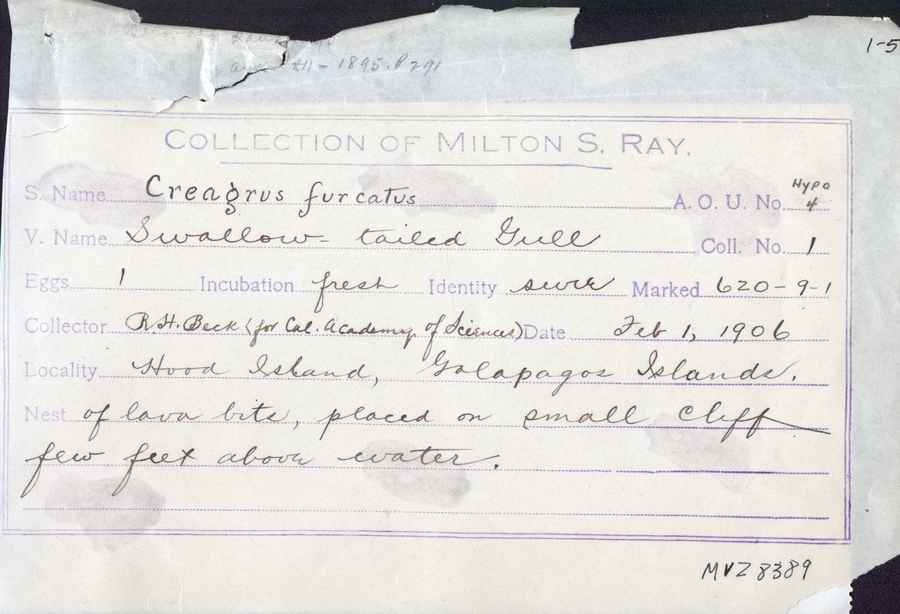 1-5
1895. P 291
COLLECTION OF MILTON S. RAY.
S. Name Creagrus furcatus A. O. U. No. Hypo 4
V. Name Swallow-tailed Gull Coll. No. 1
Eggs 1 Incubation fresh Identity sure Marked 620-9-1
Collector R.H. Beck (for Cal. Academy of Sciences) Date Feb 1, 1906
Locality Hood Island, Galapagos Islands.
Nest of lava bits, placed on small cliff
few feet above water.
MVZ 8389